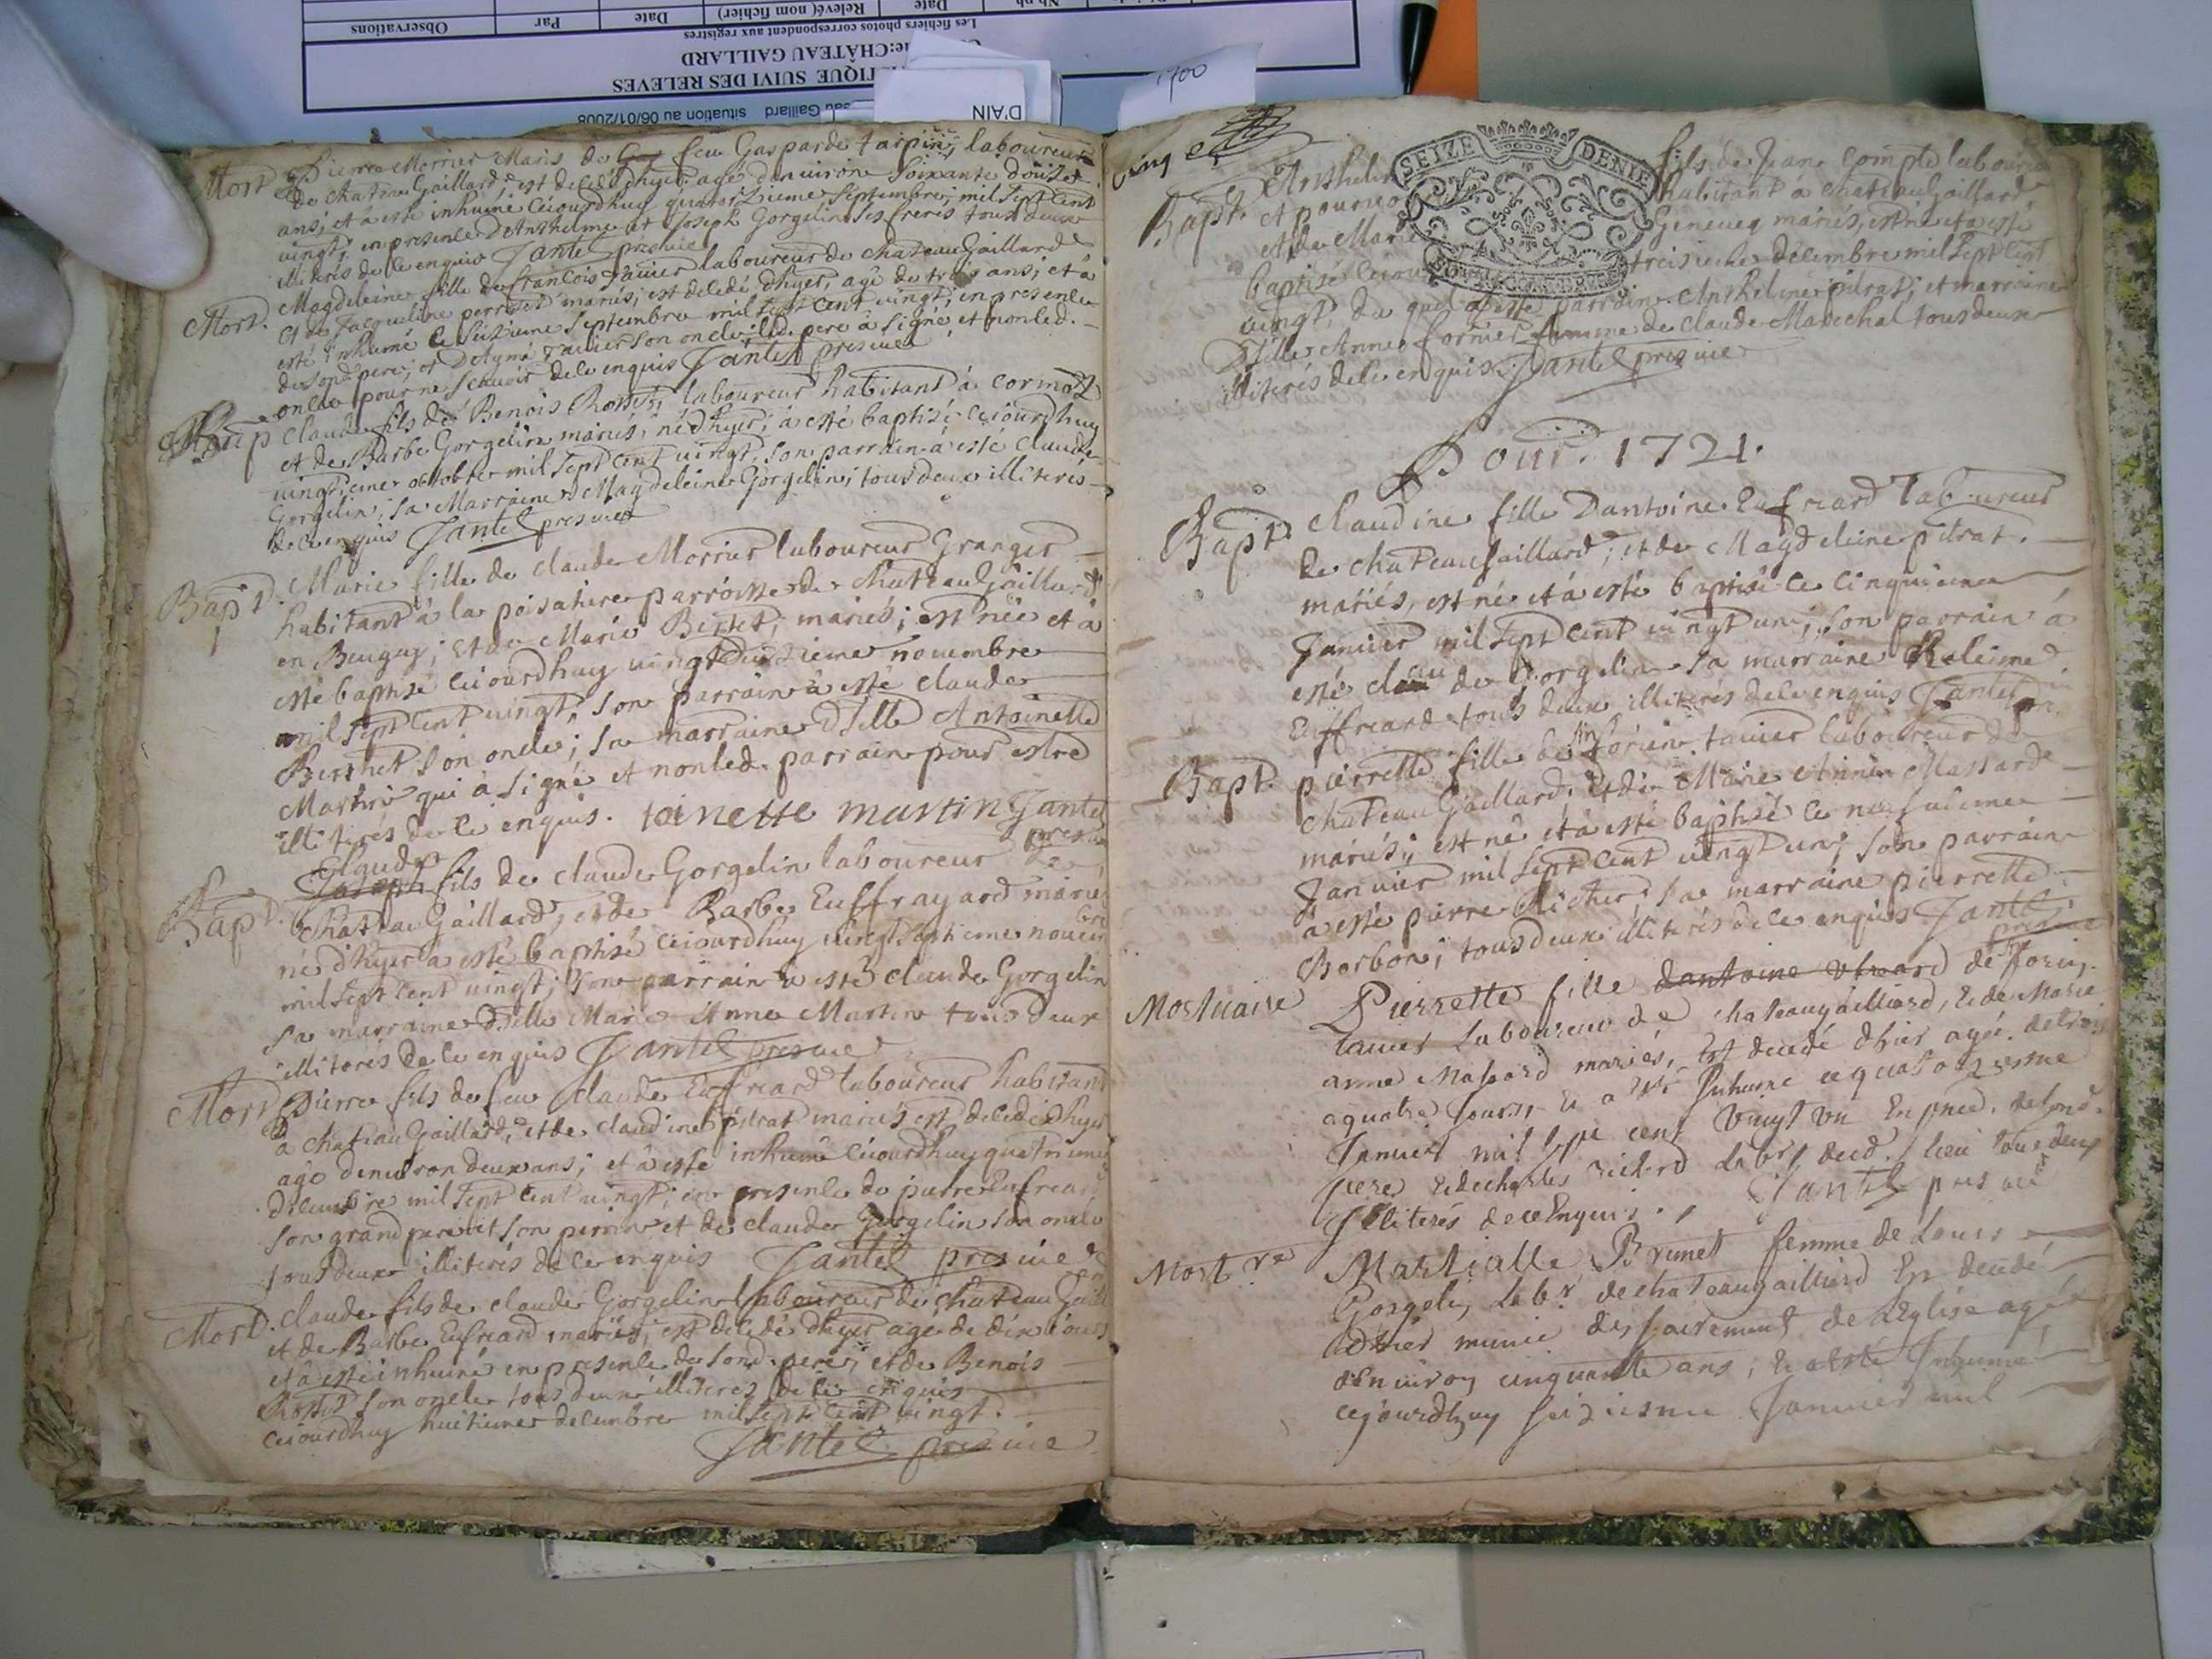 Observations
Par
Date
Relevé( nom fichier)
Date
Nb ph
Les fichiers photos correspondent aux registres
CHÂTEAU GAILLARD
TIQUE SUIVI DES RELEVES
Gaillard situation au 06/01/2008
D'AIN
1700
Mort Pierre Morrier Maris de feu Gasparde tarpin, laboureur
de chateau Gaillard, est decedé dhyer agé denuiron soixante douze
ans, et à esté inhumé ceiourdhuy quatorzieme septembre, mil sept cent
vingt, en presence Danthelme et Joseph Gorgelin ses freres tous deux
illiterés de ce enquis Jantet presvice
Mort. Magdeleine fille de francois tauier laboureur de chateau Gaillard
et de Jacqueline perret mariés, est decedé dhyer, agé de trois ans, et à
esté inhumé le seizieme septembre mil sept cent vingt, en presence
de sond. pere, et Daymé tauier son oncle led. pere à signé et non led.
oncle pour ne scauoir de ce enquis Jantet presvice
Bap claude fils de Benois Rosset, laboureur habitant à cormoz
et de Barbe Gorgelin mariés, né dhyer, à esté baptisé ceiourdhuy
vingtieme octobre mil sept cent vingt, son parrain à esté claude
Gorgelin, sa Marraine Magdeleine Gorgelin, tous deux illiterés
de ce enquis Jantet presvice
Bapt. Marie fille de claude Morrier laboureur Granger
habitant à la poisatiere parroisse de chateau Gaillard
en Beugey, et de Marie Bertet, mariés, est née et à
esté baptisé ceiourdhuy vingt novembre
mil sept cent vingt, son parrain à esté claude
Berthet son oncle, sa marraine dlle Antoinette
Martin qui à signé et non led. parrain pour estre
illiterés de ce enquis. toinette martin Jantet
presvice
Claude
Joseph fils de claude Gorgelin laboureur de
Bapt. chateau Gaillard, et de Barbe Euffrayard mariés
né dhyer à esté baptisé ceiourdhuy vingt septieme novem
bre
mil sept cent vingt, son parrain à esté claude Gorgelin
sa marraine dlle Marie Anne Martin tous deux
illiterés de ce enquis Jantet presvice
Mort Pierre fils de feu Claude Eufreard laboureur habitant
à chateau Gaillard, et de claudine pitrat mariés est decedé dhyer
agé denuiron deux ans, et à esté inhumé ceiourdhuy quatrieme
decembre mil sept cent vingt, en presence de pierre Eufreard
son grand pere et son perrin et de claude Gorgelin son oncle
tous deux illiterés de ce enquis Jantet presvice
Mort. claude fils de claude Gorgelin laboureur de chateau Gaill
et de Barbe Eufreard mariés, est decedé dhyer agé de dix iours
et à esté inhumé en presence de sond. pere, et de Benois
Rosset son oncle tous deux illiteres de ce enquis
ceiourdhuy huitieme decembre mil sept cent vingt.
Jantet presvice
cinq
SEIZE DENIE
Bapt. Anthelm fils de Jean Compte laboureur
et pourvo habitant à chateau Gaillard
et de Marie Geneuey mariés, est né et à esté
baptisé ceiour treizieme decembre mil sept cent
vingt, du quel à esté parrain Anthelme pitrat, et marraine
dlle Anne fornier femme de claude Marechal tous deux
illiterés de ce enquis. Jantet presvice
Pour. 1721.
Bapt. Claudine fille Dantoine Eufreard laboureur
de chateau Gaillard, et de Magdeleine pitrat.
mariés, est né et à esté baptisé le cinquieme
Janvier mil sept cent vingt un, son parrain à
esté claude Gorgelin sa marraine
Euffreard tous deux illiterés de ce enquis Jantet
Bapt. pierrette fille de forin tauier laboureur de
chateau Gaillard, et de Marie Anne Massard
mariés, est né et à esté baptisé le neufuieme
Janvier mil sept cent vingt un, son parrain
à esté pierre Richer, sa marraine pierrette
Borbon, tous deux illiterés de ce enquis Jantet
presvice
Mortuaire Pierrette fille dantoine ufreard de forin
tauier Laboureur de chateaugailliard, et de Marie
anne Massard mariés, Est decedé dhier agée. de trois
a quatre Jours, et a esté Inhumé ce quatorziesme
Janvier mil sept cent vingt un En pnce. de sond.
pere et de charles richerd Labr dud. lieu tous deux
Illiterés de ce Enquis., Jantet presvice
Mort.re Martialle Brunet femme de Louis
Gorgelin Labr de chateaugailliard Est decedé
dhier munie des sacrements de LEglise agée
denuiron cinquante ans, et a esté Inhumé
cejourdhuy seiziesme Januier mil